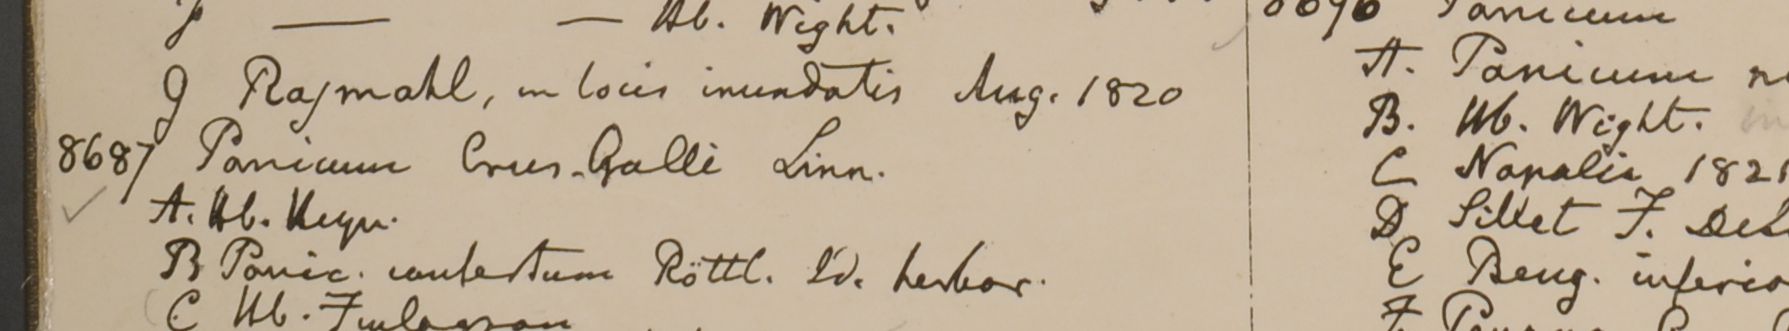 f — — Hb. Wight.
g Rajmahl, in locis inundatis Aug. 1820
8687 Panicum Crus-Galli Linn.
A. Hb. Heyn.
B Panic. confertum Röttl. Id. herbar.
C Hb. Finlayson
8696 Panicum
A. Panicum
B. Hb. Wight.
C Napalia 1821
D Sillet F. DeS
E Beng. inferio
F